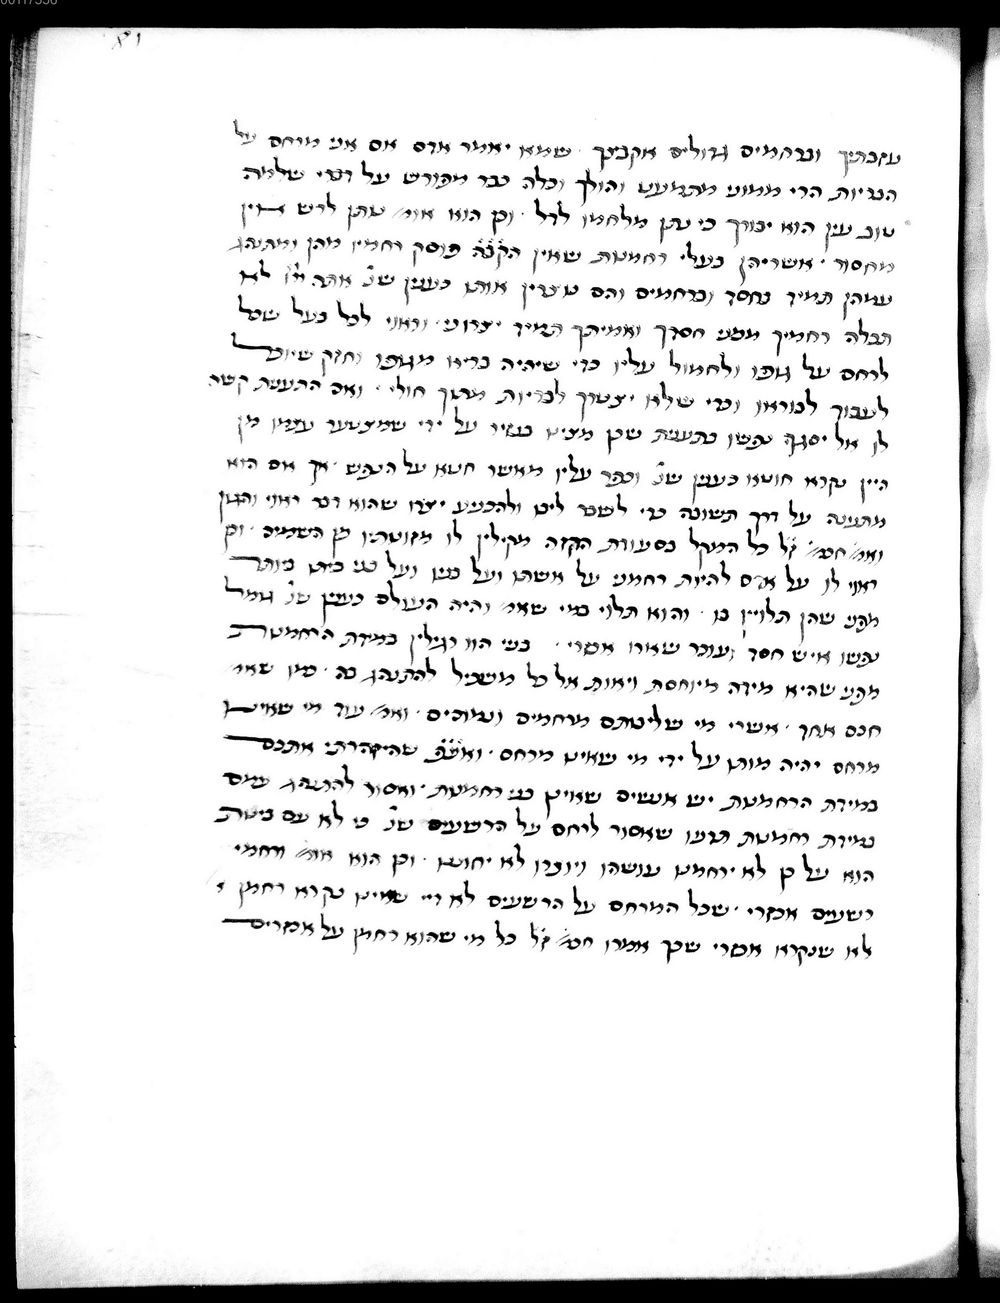 עזבתיך וברחמים גדולים אקבצך . שמא יאמר אדם אם אני מרחם על
הבריות הרי ממוני מתמעט והולך וכלה כבר מפורש על ידי שלמה
טוב עין הוא יבורך כי נתן מלחמו לדל . וכן הוא אומ' נותן לרש אין
מחסור . אשריהן בעלי רחמנות שאין הקבה פוסק רחמיו מהן ומתנהג
עמהן תמיד בחסד וברחמים והם נוצרין אותן כענין שנ' אתה יי' לא
תכלה רחמיך ממני חסדך ואמיתך תמיד יצרוני . וראוי לכל בעל שכל
לרחם על גופו ולחמול עליו כדי שיהיה בריא מגופו וחזק שיוכל
לעבוד לבוראו וכדי שלא יצטרך לבריות מתוך חולי . ואם התענית קשה
לו אל יסגף נפשו בתענית שכן מצינו בנזיר על ידי שמצטער עצמו מן
היין נקרא חוטא כענין שנ' וכפר עליו מאשר חטא על הנפש . אך אם הוא
מתענה על דרך תשובה כדי לשבר לבו ולהכניע יצרו שהוא דבר ראוי והגון
ואמ' חכמ' ז'ל כל המקל בסעודת הקזה מקילין לו מזונותיו מן השמים . וכן
ראוי לו על אדם להיות רחמני על אשתו ועל בניו ועל בני ביתו ביותר
מפני שהן תלויין בו . והוא תלוי במי שאמ' והיה העולם כענין שנ' גומל
נפשו איש חסד ועוכר שארו אכזרי . בני הוו רגילין במידת הרחמנות
מפני שהיא מידה מיוחסת ויאות אל כל משכיל להתנהג בה . כמו שאמ'
חכם אחד . אשרי מי שליטתם מרחמים ונמוכים . ואמ' עוד מי שאינו
מרחם יהיה מותו על ידי מי שאינו מרחם . ואעפ שהזהרתי אתכם
במידת הרחמנות יש אנשים שאינן בני רחמנות . ואסור להתנהג עמם
במידת רחמנות תדעו שאסור לרחם על הרשעים שנ' כי לא עם בינות
הוא על כן לא ירחמנו עושהו ויוצרו לא יחוננו . וכן הוא אומ' ורחמי
רשעים אכזרי . שכל המרחם על הרשעים לא דיי שאינו נקרא רחמן
לא שנקרא אכזרי שכך אמרו חכמ' ז'ל כל מי שהוא רחמן על אכזרים